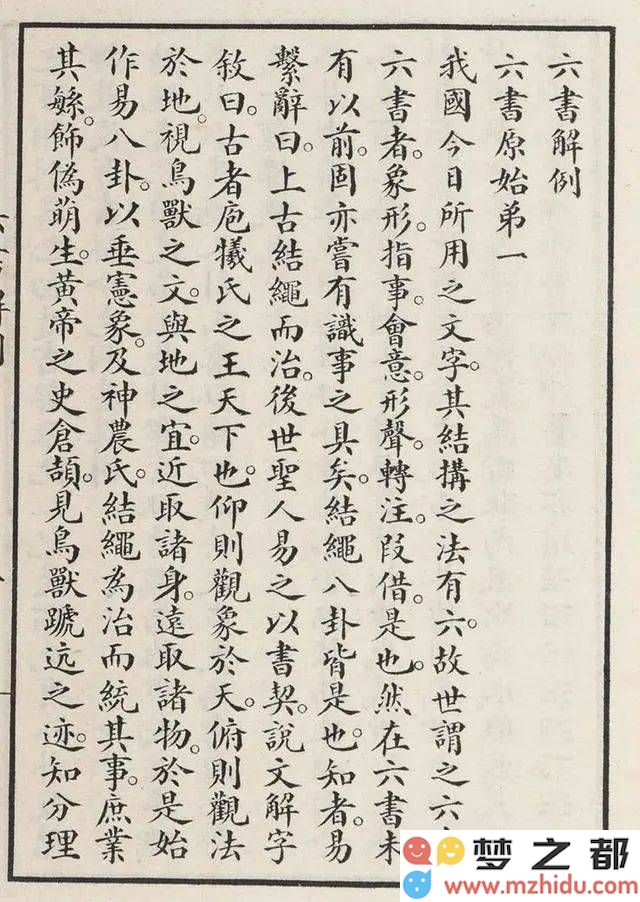 六書解例
六書原始弟一
我國今日所用之文字。其結構之法有六。故世謂之六
六書者。象形。指事。會意。形聲。轉注。叚借。是也。然在六書未
有以前。固亦嘗有識事之具矣。結繩八卦皆是也。知者。易
繫辭曰。上古結繩而治。後世聖人易之以書契。說文解字
敘曰。古者庖犧氏之王天下也。仰則觀象於天。俯則觀法
於地。視鳥獸之文。與地之宜。近取諸身。遠取諸物。於是始
作易八卦。以垂憲象。及神農氏。結繩為治而統其事。庶業
其緐。飾偽萌生。黃帝之史倉頡。見鳥獸蹏迒之迹。知分理
梦之都
www.mzhidu.com